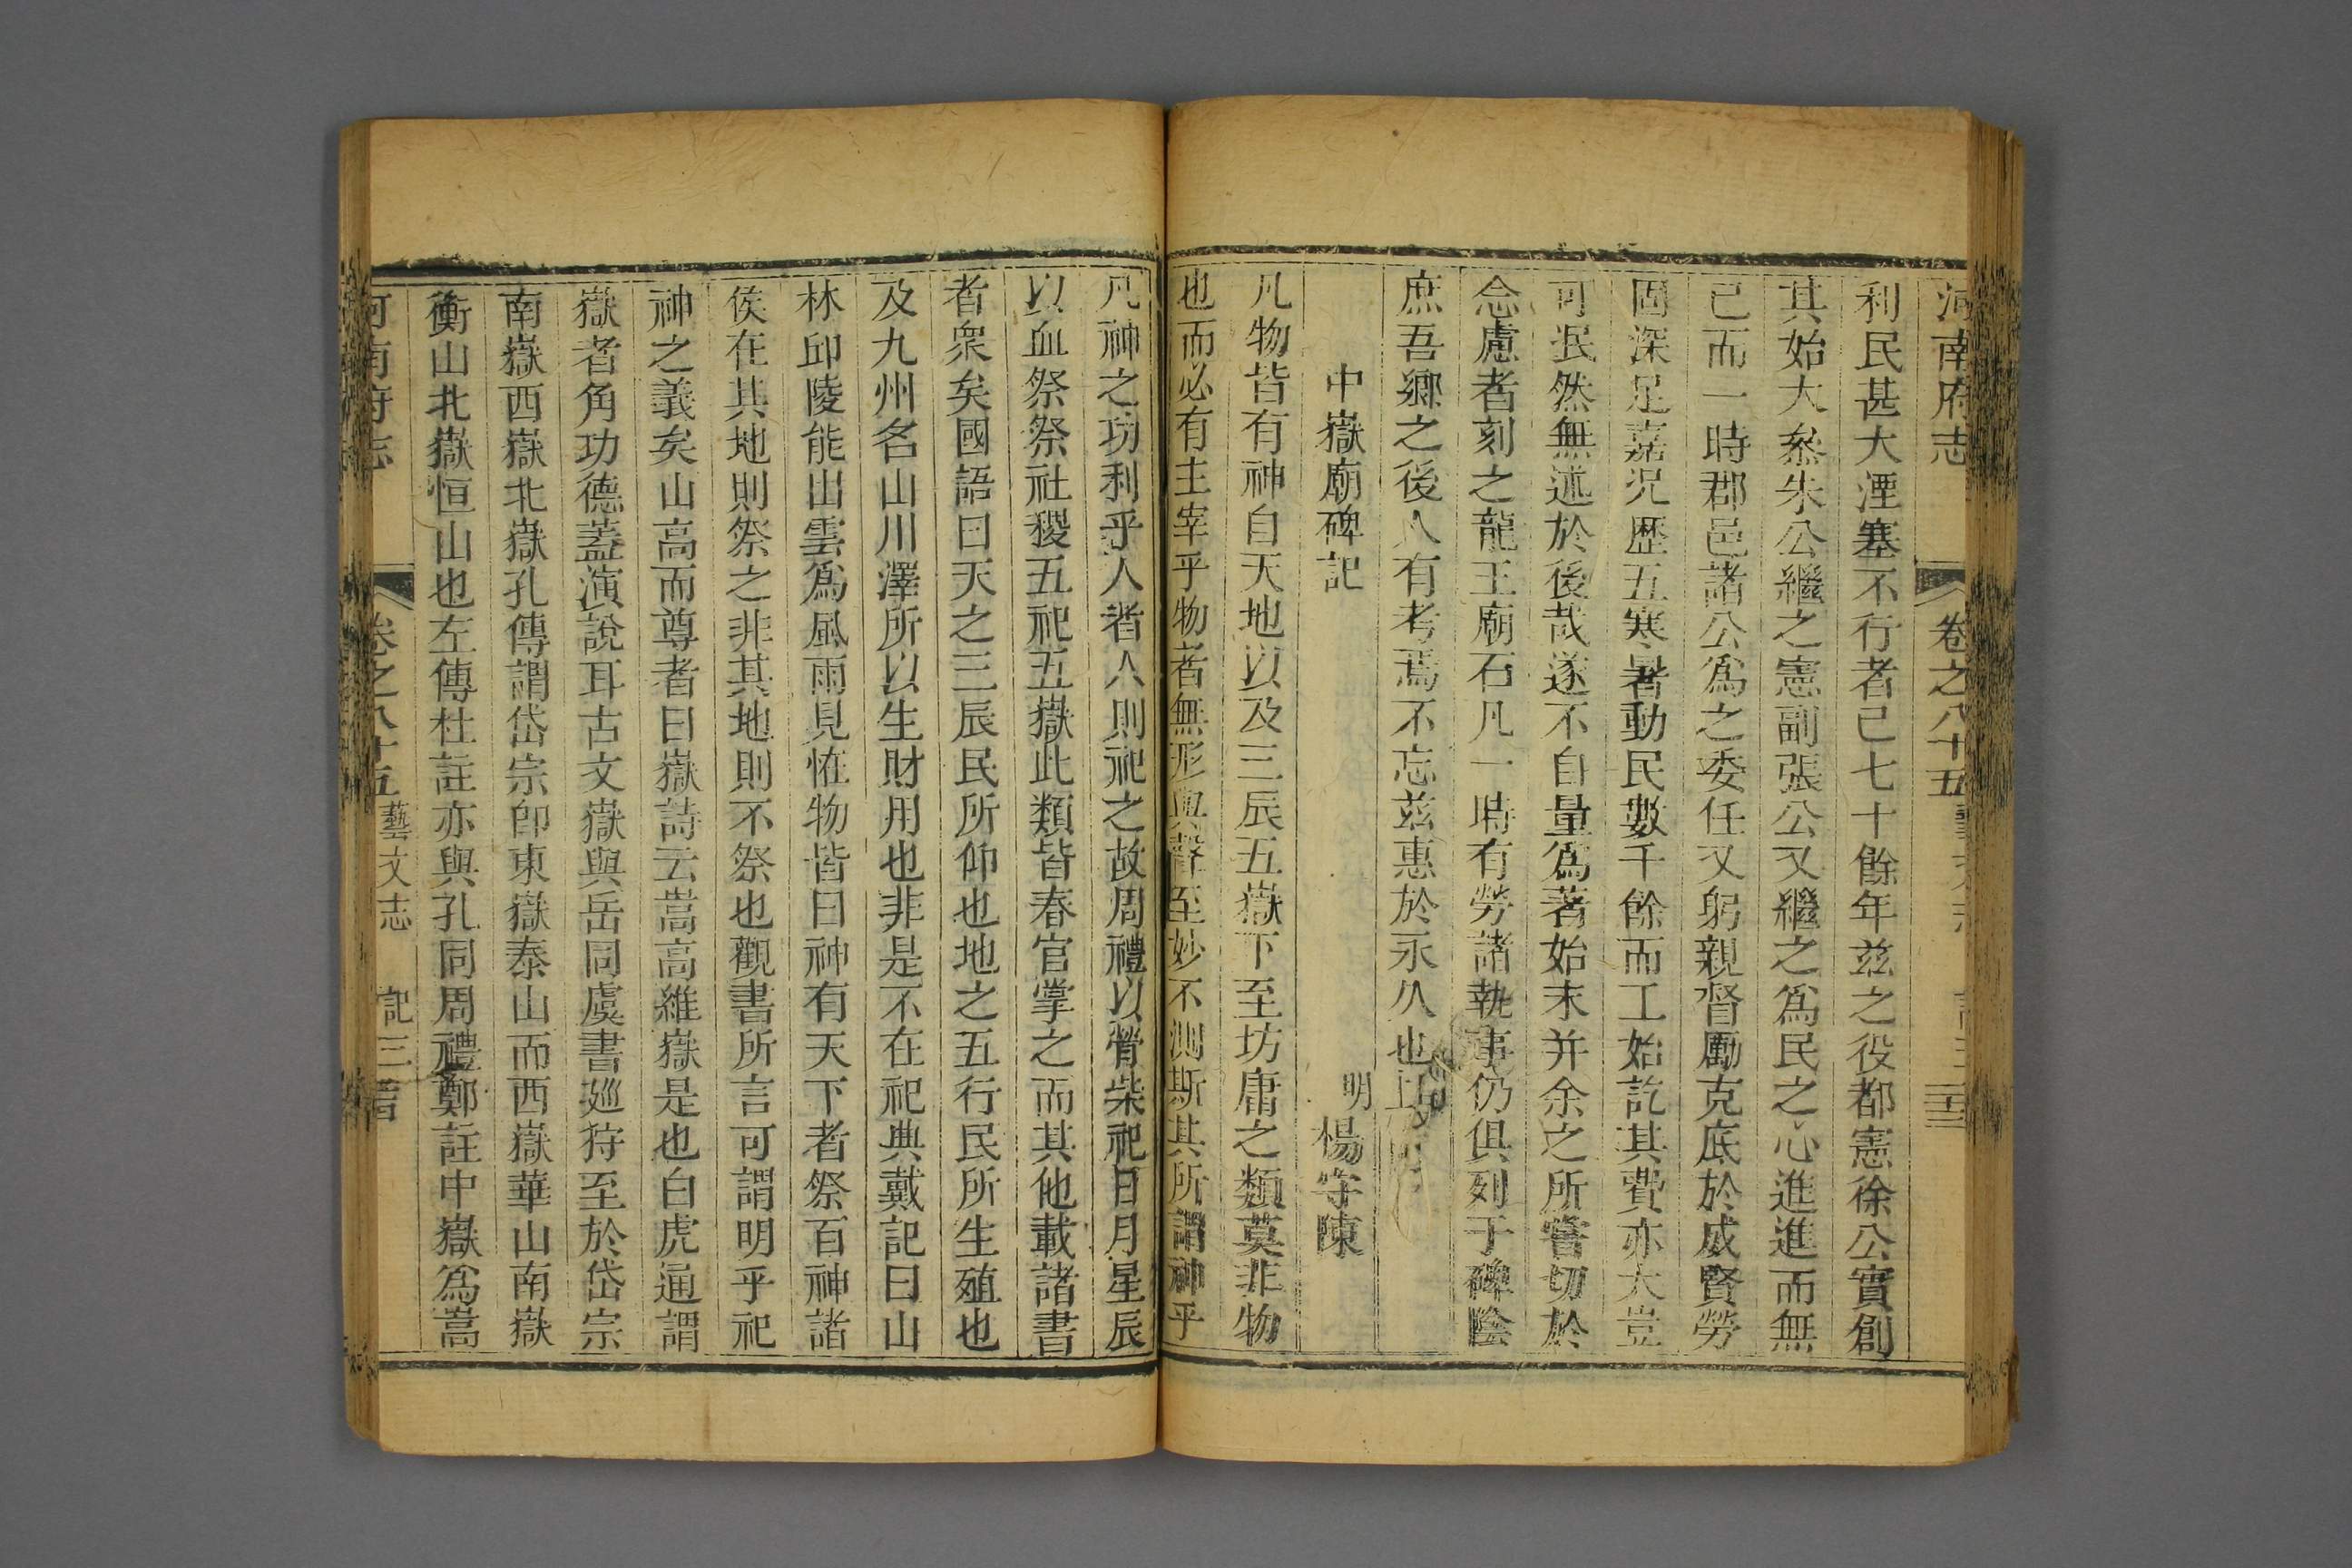 河南府志 卷之八十五
利民甚大湮塞不行者已七十餘年兹之役都憲徐公實創
其始大叅朱公繼之憲副張公又繼之爲民之心進進而無
已而一時郡邑諸公爲之委任又躬親督勵克底於成賢勞
固深足嘉況歷五寒暑動民數千餘而工始訖其費亦大豈
可泯然無述於後哉遂不自量爲著始末并余之所嘗切於
念慮者刻之龍王廟石凡一時有勞諸執事仍俱列于碑陰
庶吾鄉之後人有考焉不忘兹惠於永久也
中嶽廟碑記 明 楊守陳
凡物皆有神自天地以及三辰五嶽下至坊庸之類莫非物
也而必有主宰乎物者無形與聲至妙不測斯其所謂神乎
凡神之功利乎人者人則祀之故周禮以膋柴祀日月星辰
以血祭祭社稷五祀五嶽此類皆春官掌之而其他載諸書
者衆矣國語曰天之三辰民所仰也地之五行民所生殖也
及九州名山川澤所以生財用也非是不在祀典戴記曰山
林邱陵能出雲爲風雨見恠物皆曰神有天下者祭百神諸
侯在其地則祭之非其地則不祭也觀書所言可謂明乎祀
神之義矣山高而尊者曰嶽詩云嵩高維嶽是也白虎通謂
嶽者角功德蓋演說耳古文嶽與岳同虞書廵狩至於岱宗
南嶽西嶽北嶽孔傳謂岱宗卽東嶽泰山而西嶽華山南嶽
衡山北嶽恒山也左傳杜註亦與孔同周禮鄭註中嶽爲嵩
河南府志 卷之八十五 藝文志 記三